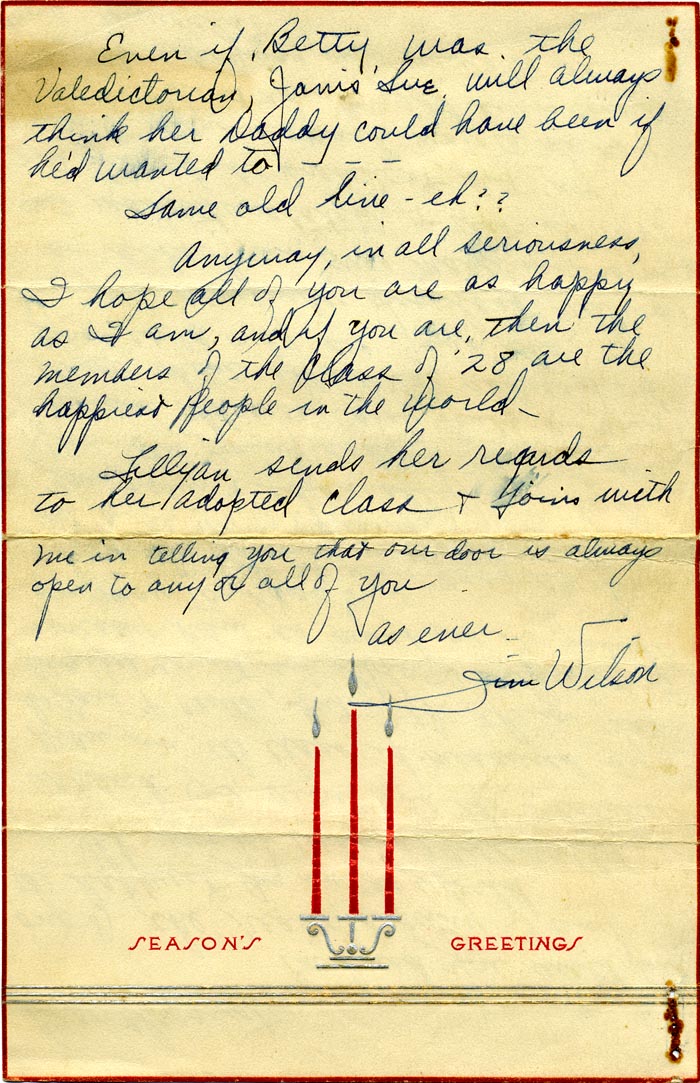 Even if Betty was the
Valedictorian, Janis Sue, will always
think her Daddy could have been if
he'd wanted to - - -
Same old line - eh??
Anyway, in all seriousness,
I hope all of you are as happy
as I am, and if you are, then the
members of the Class of '28 are the
happiest people in the world -
Lillian sends her regards
to her adopted class & joins with
me in telling you that our door is always
open to any or all of you
as ever -
Jim Wilson
SEASON'S GREETINGS